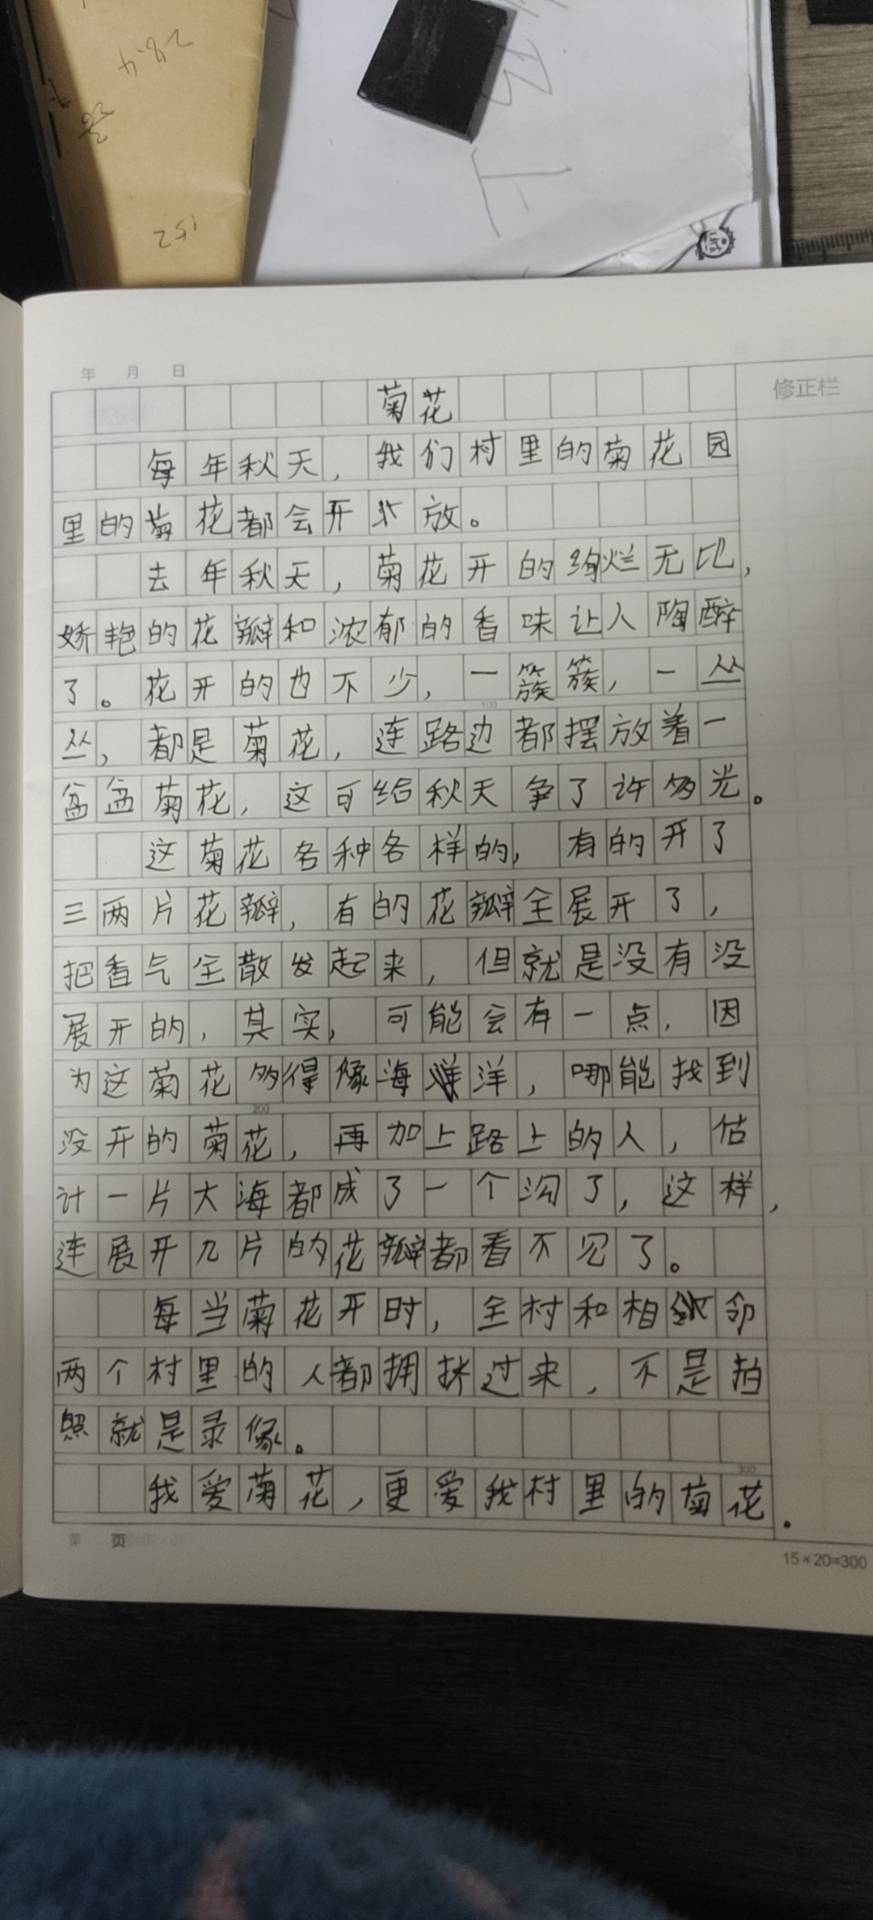 28.4
152
年 月 日
修正栏
菊花
每年秋天，我们村里的菊花园
里的菊花都会开放。
去年秋天，菊花开的绚烂无比，
娇艳的花瓣和浓郁的香味让人陶醉
了。花开的也不少，一簇簇，一丛
丛，都是菊花，连路边都摆放着一
盆盆菊花，这可给秋天争了许多光。
这菊花各种各样的，有的开了
三两片花瓣，有的花瓣全展开了，
把香气全散发起来，但就是没有没
展开的，其实，可能会有一点，因
为这菊花多得像海洋，哪能找到
没开的菊花，再加上路上的人，估
计一片大海都成了一个沟了，这样，
连展开几片的花瓣都看不见了。
每当菊花开时，全村和相邻
两个村里的人都拥挤过来，不是拍
照就是录像。
我爱菊花，更爱我村里的菊花。
第 页
15×20=300